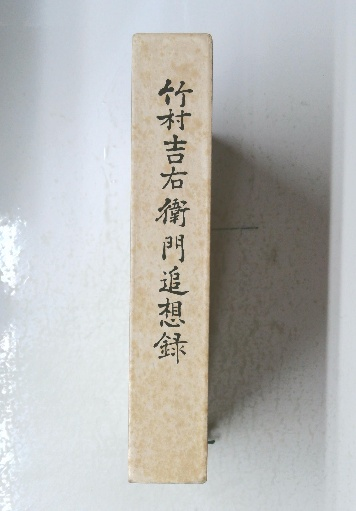 竹村吉右衛門追想録